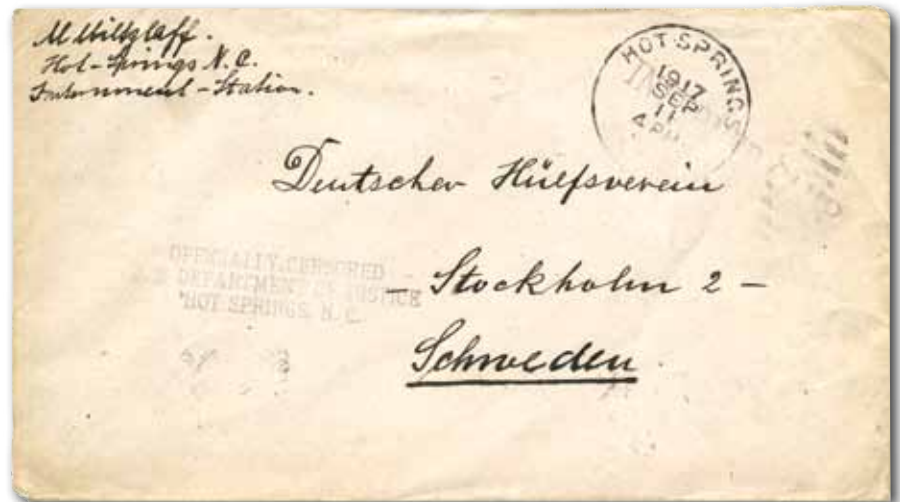 Hot-Springs N.C.
Internment-Station.
HOT SPRINGS
1917
SEP
11
4 PM
Deutscher Hülfsverein
- Stockholm 2 -
Schweden
OFFICIALLY CENSORED
DEPARTMENT OF JUSTICE
HOT SPRINGS, N.C.